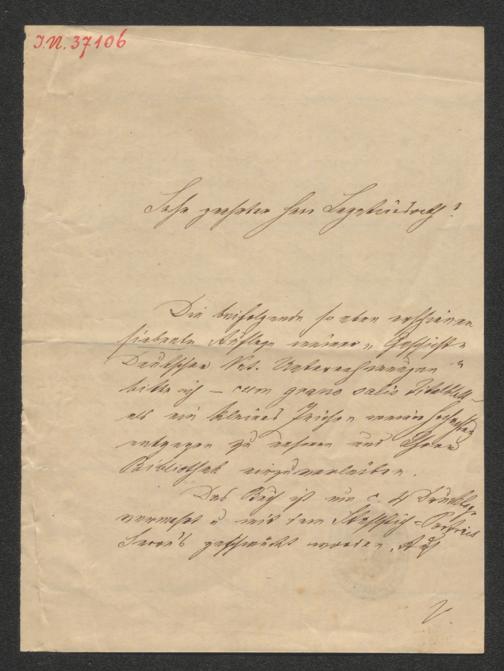 I.N. 37106
Sehr geehrter Herr Legationsrath!
Die beifolgende so eben erschienene
siebente Auflage meiner „Geschichte
Deutscher Nat. Unternehmungen“
bitte ich – cum grano salis
als ein kleines Zeichen meiner
entgegen zu nehmen und Ihrer
Bibliothek einzuverleiben.
Das Buch ist um c. 4
vermehrt u mit dem Portrait
geschmückt worden. Auf